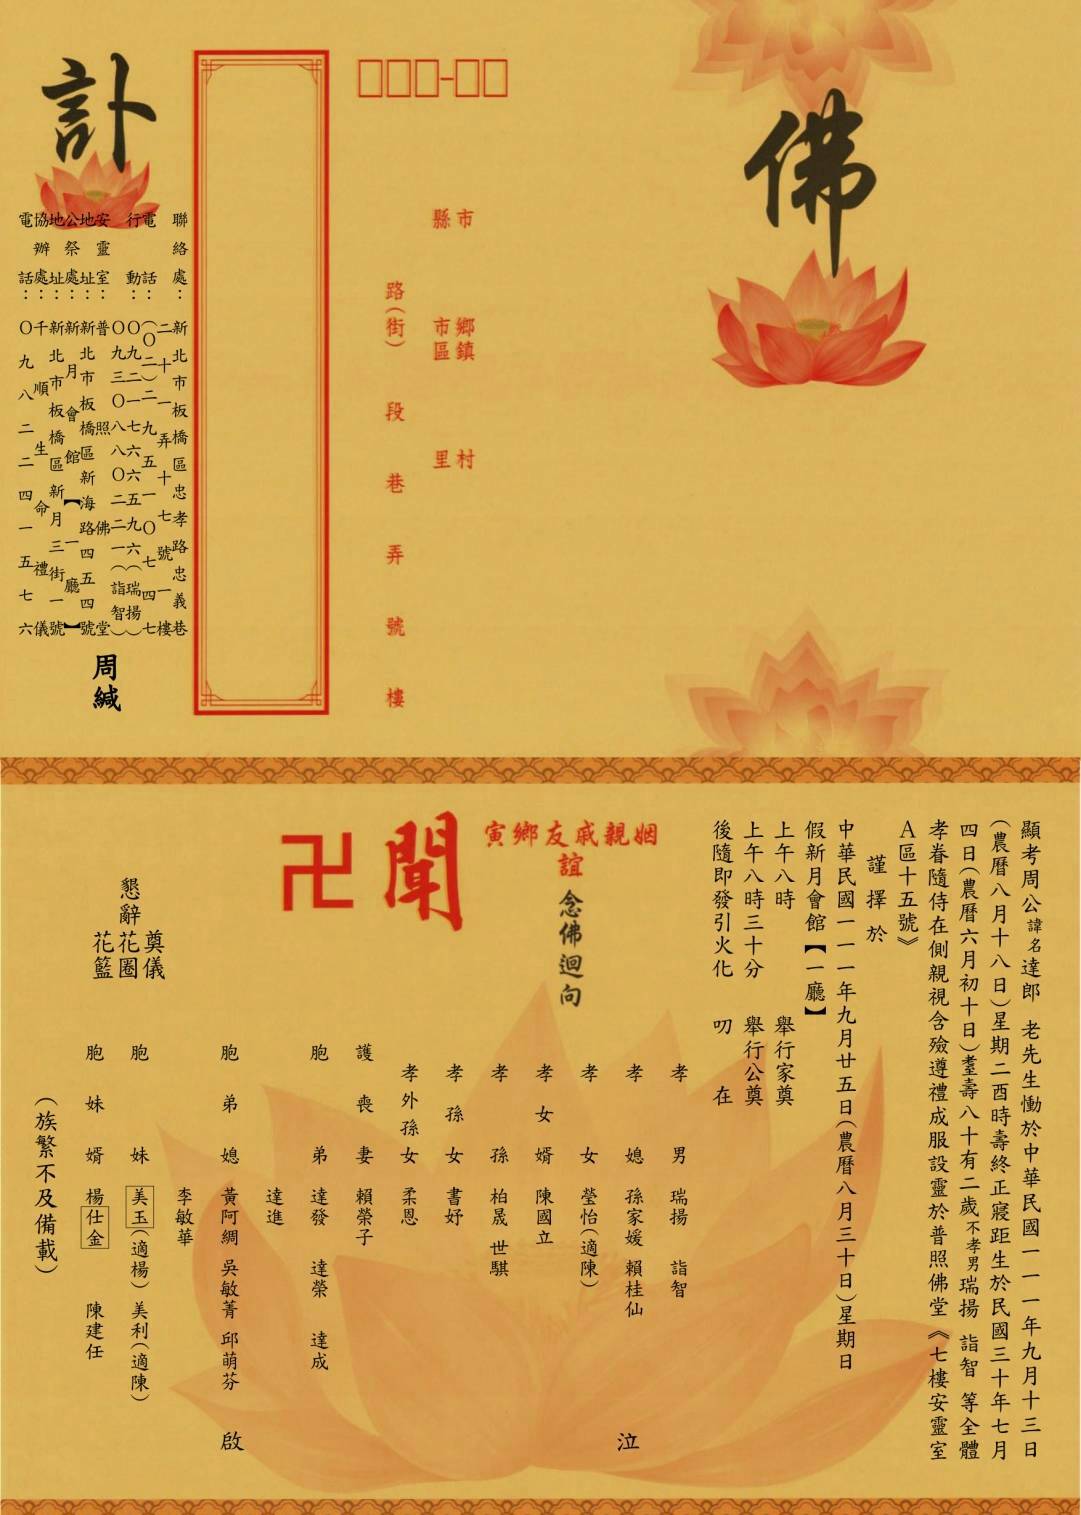 佛
□□□-□□
市
縣
鄉鎮
市區
村
里
路(街) 段 巷 弄 號 樓
訃
聯絡處：新北市板橋區忠孝路忠義巷
二十一弄十七號一樓
電話：(〇二)二九五一〇七四七
行動：〇九二一七六六五九六(瑞揚)
〇九三〇八八〇二二一(詣智)
安靈室：普照佛堂
地址：新北市板橋區新海路四五四號
公祭處：新月會館【一廳】
地址：新北市板橋區新月三街一號
協辦處：千順生命禮儀
電話：〇九八二二四一五七六
周緘
顯考周公諱名達郎 老先生慟於中華民國一一一年九月十三日
(農曆八月十八日)星期二酉時壽終正寢距生於民國三十年七月
四日(農曆六月初十日)耋壽八十有二歲不孝男瑞揚 詣智 等全體
孝眷隨侍在側親視含殮遵禮成服設靈於普照佛堂《七樓安靈室
A區十五號》
謹擇於
中華民國一一一年九月廿五日(農曆八月三十日)星期日
假新月會館【一廳】
上午八時 舉行家奠
上午八時三十分 舉行公奠
後隨即發引火化 叨 在
寅鄉友戚親姻
誼 念佛迴向
聞
卍
懇辭
奠儀
花圈
花籃
孝男 瑞揚 詣智
孝媳 孫家媛 賴桂仙
孝女 瑩怡(適陳)
孝女婿 陳國立
孝孫 柏晟 世騏
孝孫女 書妤
孝外孫女 柔恩
護喪妻 賴榮子
胞弟 達發 達榮 達成
達進
胞弟媳 黃阿綢 吳敏菁 邱萌芬
李敏華
胞妹 美玉(適楊) 美利(適陳)
胞妹婿 楊仕金 陳建任
泣
啟
(族繁不及備載)